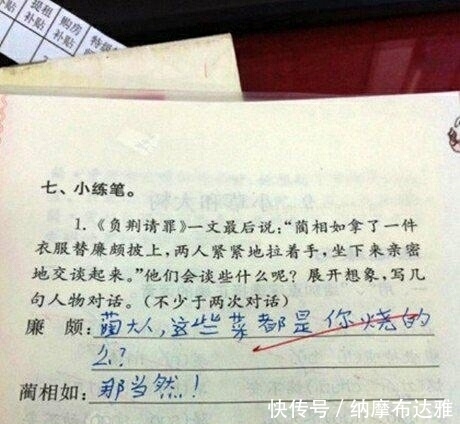 提租补贴 购房补贴 特
七、小练笔。
1.《负荆请罪》一文最后说:“蔺相如拿了一件
衣服替廉颇披上,两人紧紧地拉着手,坐下来亲密
地交谈起来。”他们会谈些什么呢?展开想象,写几
句人物对话。(不少于两次对话)
廉 颇:蔺大人,这些菜都是你烧的
么?
蔺相如:那当然!
快传号/纳摩布达雅